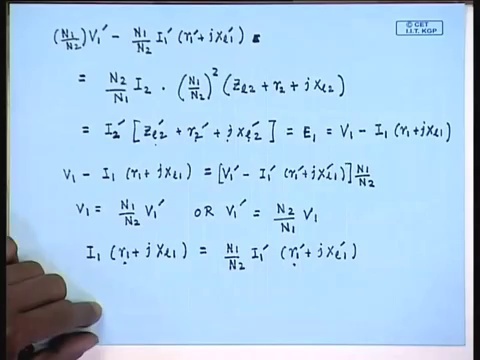 (N1/N2) V1′ − N1/N2 I1′ (r1′ + j xl1′)
© CET
I.I.T. KGP
= N2/N1 I2 · (N1/N2)² (Zl2 + r2 + j xl2)
= I2′ [Zl2′ + r2′ + j xl2′] = E1 = V1 − I1 (r1 + j xl1)
V1 − I1 (r1 + j xl1) = [V1′ − I1′ (r1′ + j xl1′)] N1/N2
V1 = N1/N2 V1′ OR V1′ = N2/N1 V1
I1 (r1 + j xl1) = N1/N2 I1′ (r1′ + j xl1′)